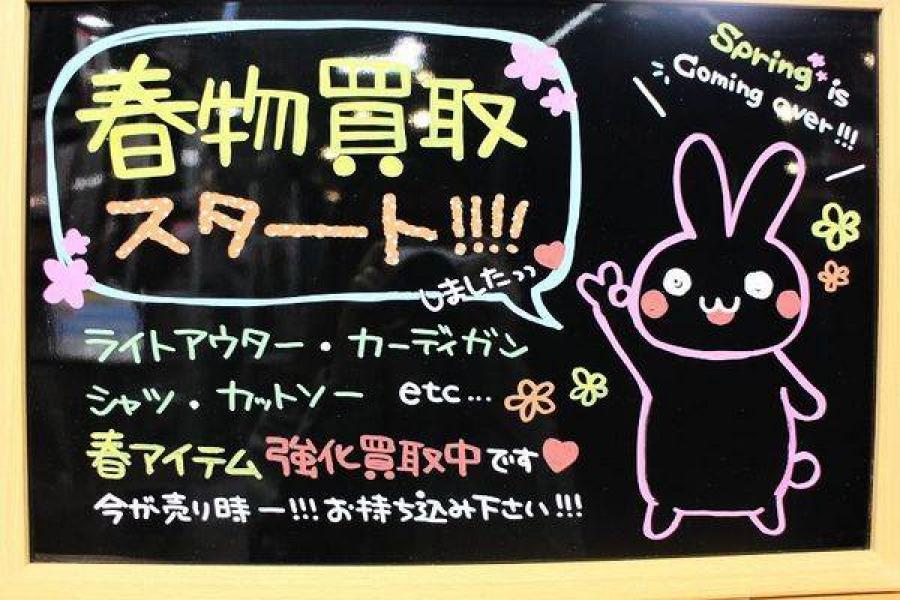 春物買取
スタート!!!!
しました››
ライトアウター・カーディガン
シャツ・カットソー etc…
春アイテム強化買取中です♥
今が売り時ー!!! お持ち込み下さい!!!
Spring is
Coming over!!!